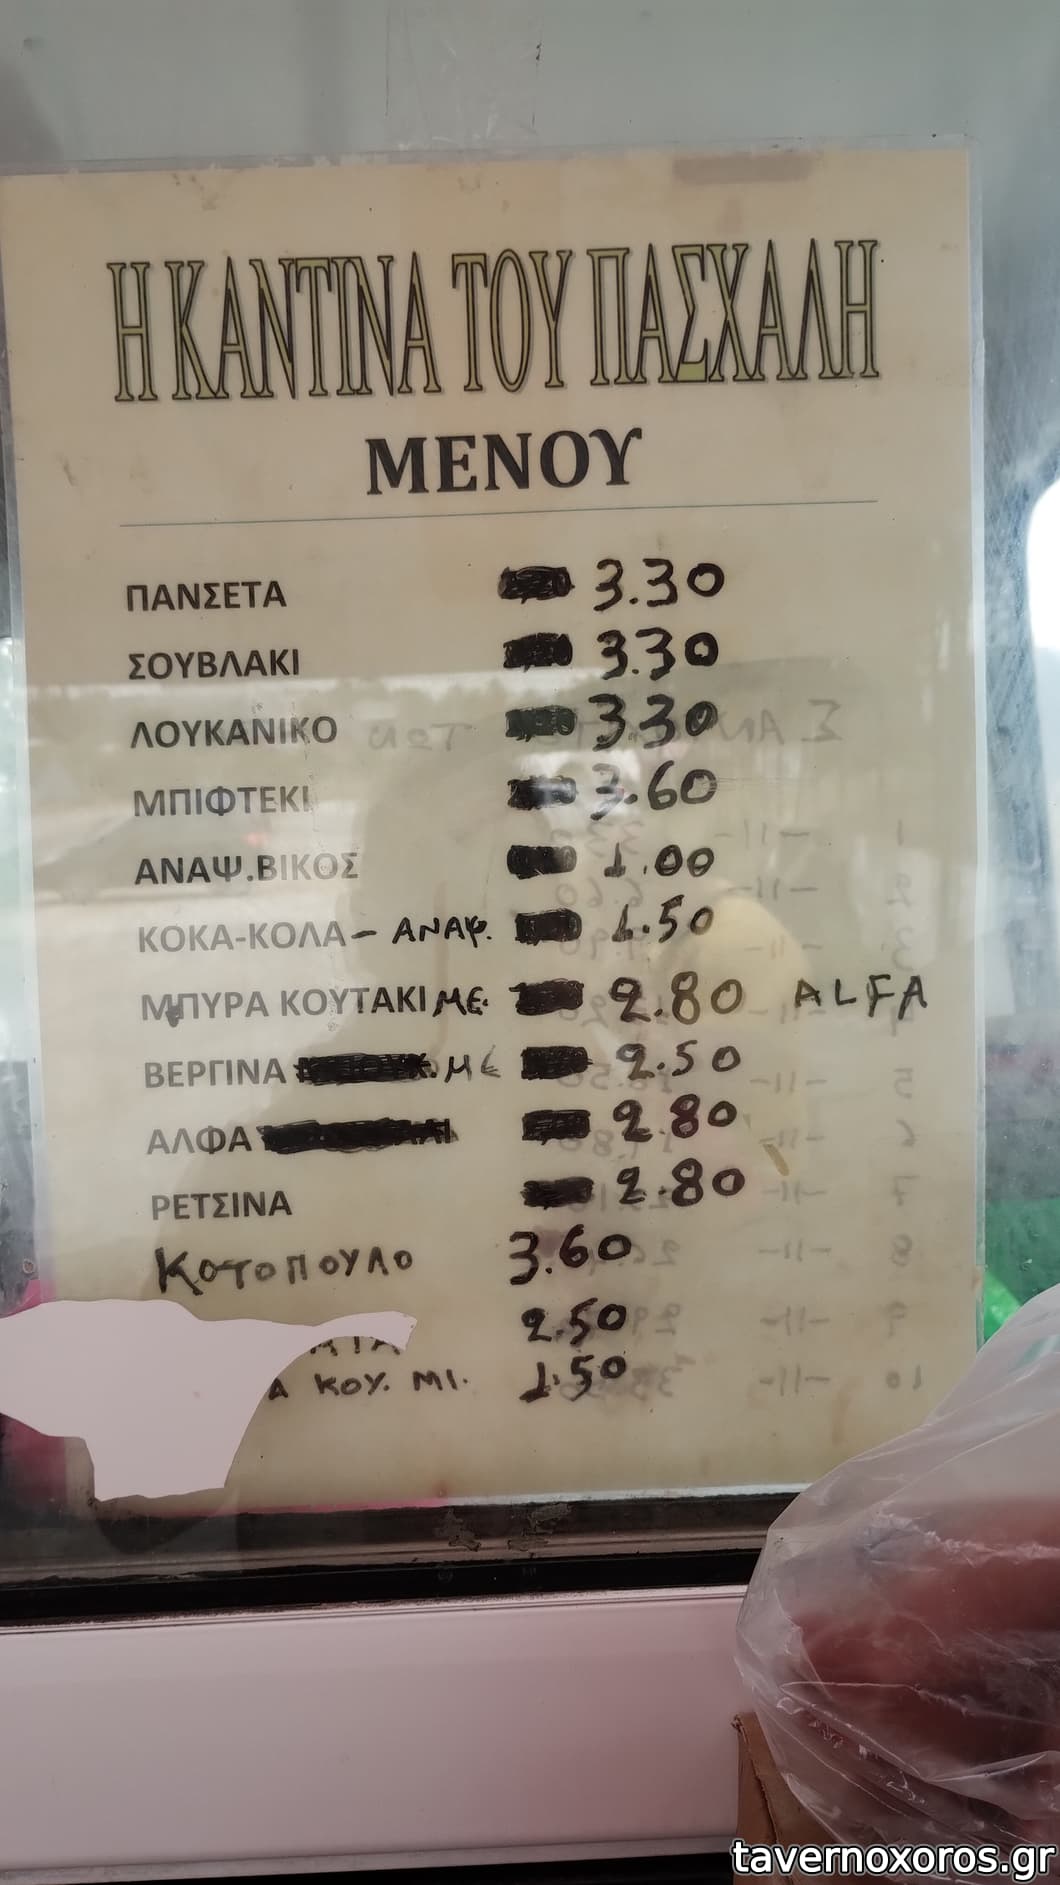 Η ΚΑΝΤΙΝΑ ΤΟΥ ΠΑΣΧΑΛΗ
ΜΕΝΟΥ
ΠΑΝΣΕΤΑ 3.30
ΣΟΥΒΛΑΚΙ 3.30
ΛΟΥΚΑΝΙΚΟ 3.30
ΜΠΙΦΤΕΚΙ 3.60
ΑΝΑΨ.ΒΙΚΟΣ 1.00
ΚΟΚΑ-ΚΟΛΑ - ΑΝΑΨ. 1.50
ΜΠΥΡΑ ΚΟΥΤΑΚΙ ΜΕ. 2.80 ALFA
ΒΕΡΓΙΝΑ ΜΕ 2.50
ΑΛΦΑ 2.80
ΡΕΤΣΙΝΑ 2.80
ΚΟΤΟΠΟΥΛΟ 3.60
2.50
ΚΟΥ. ΜΙ. 1.50
tavernoxoros.gr